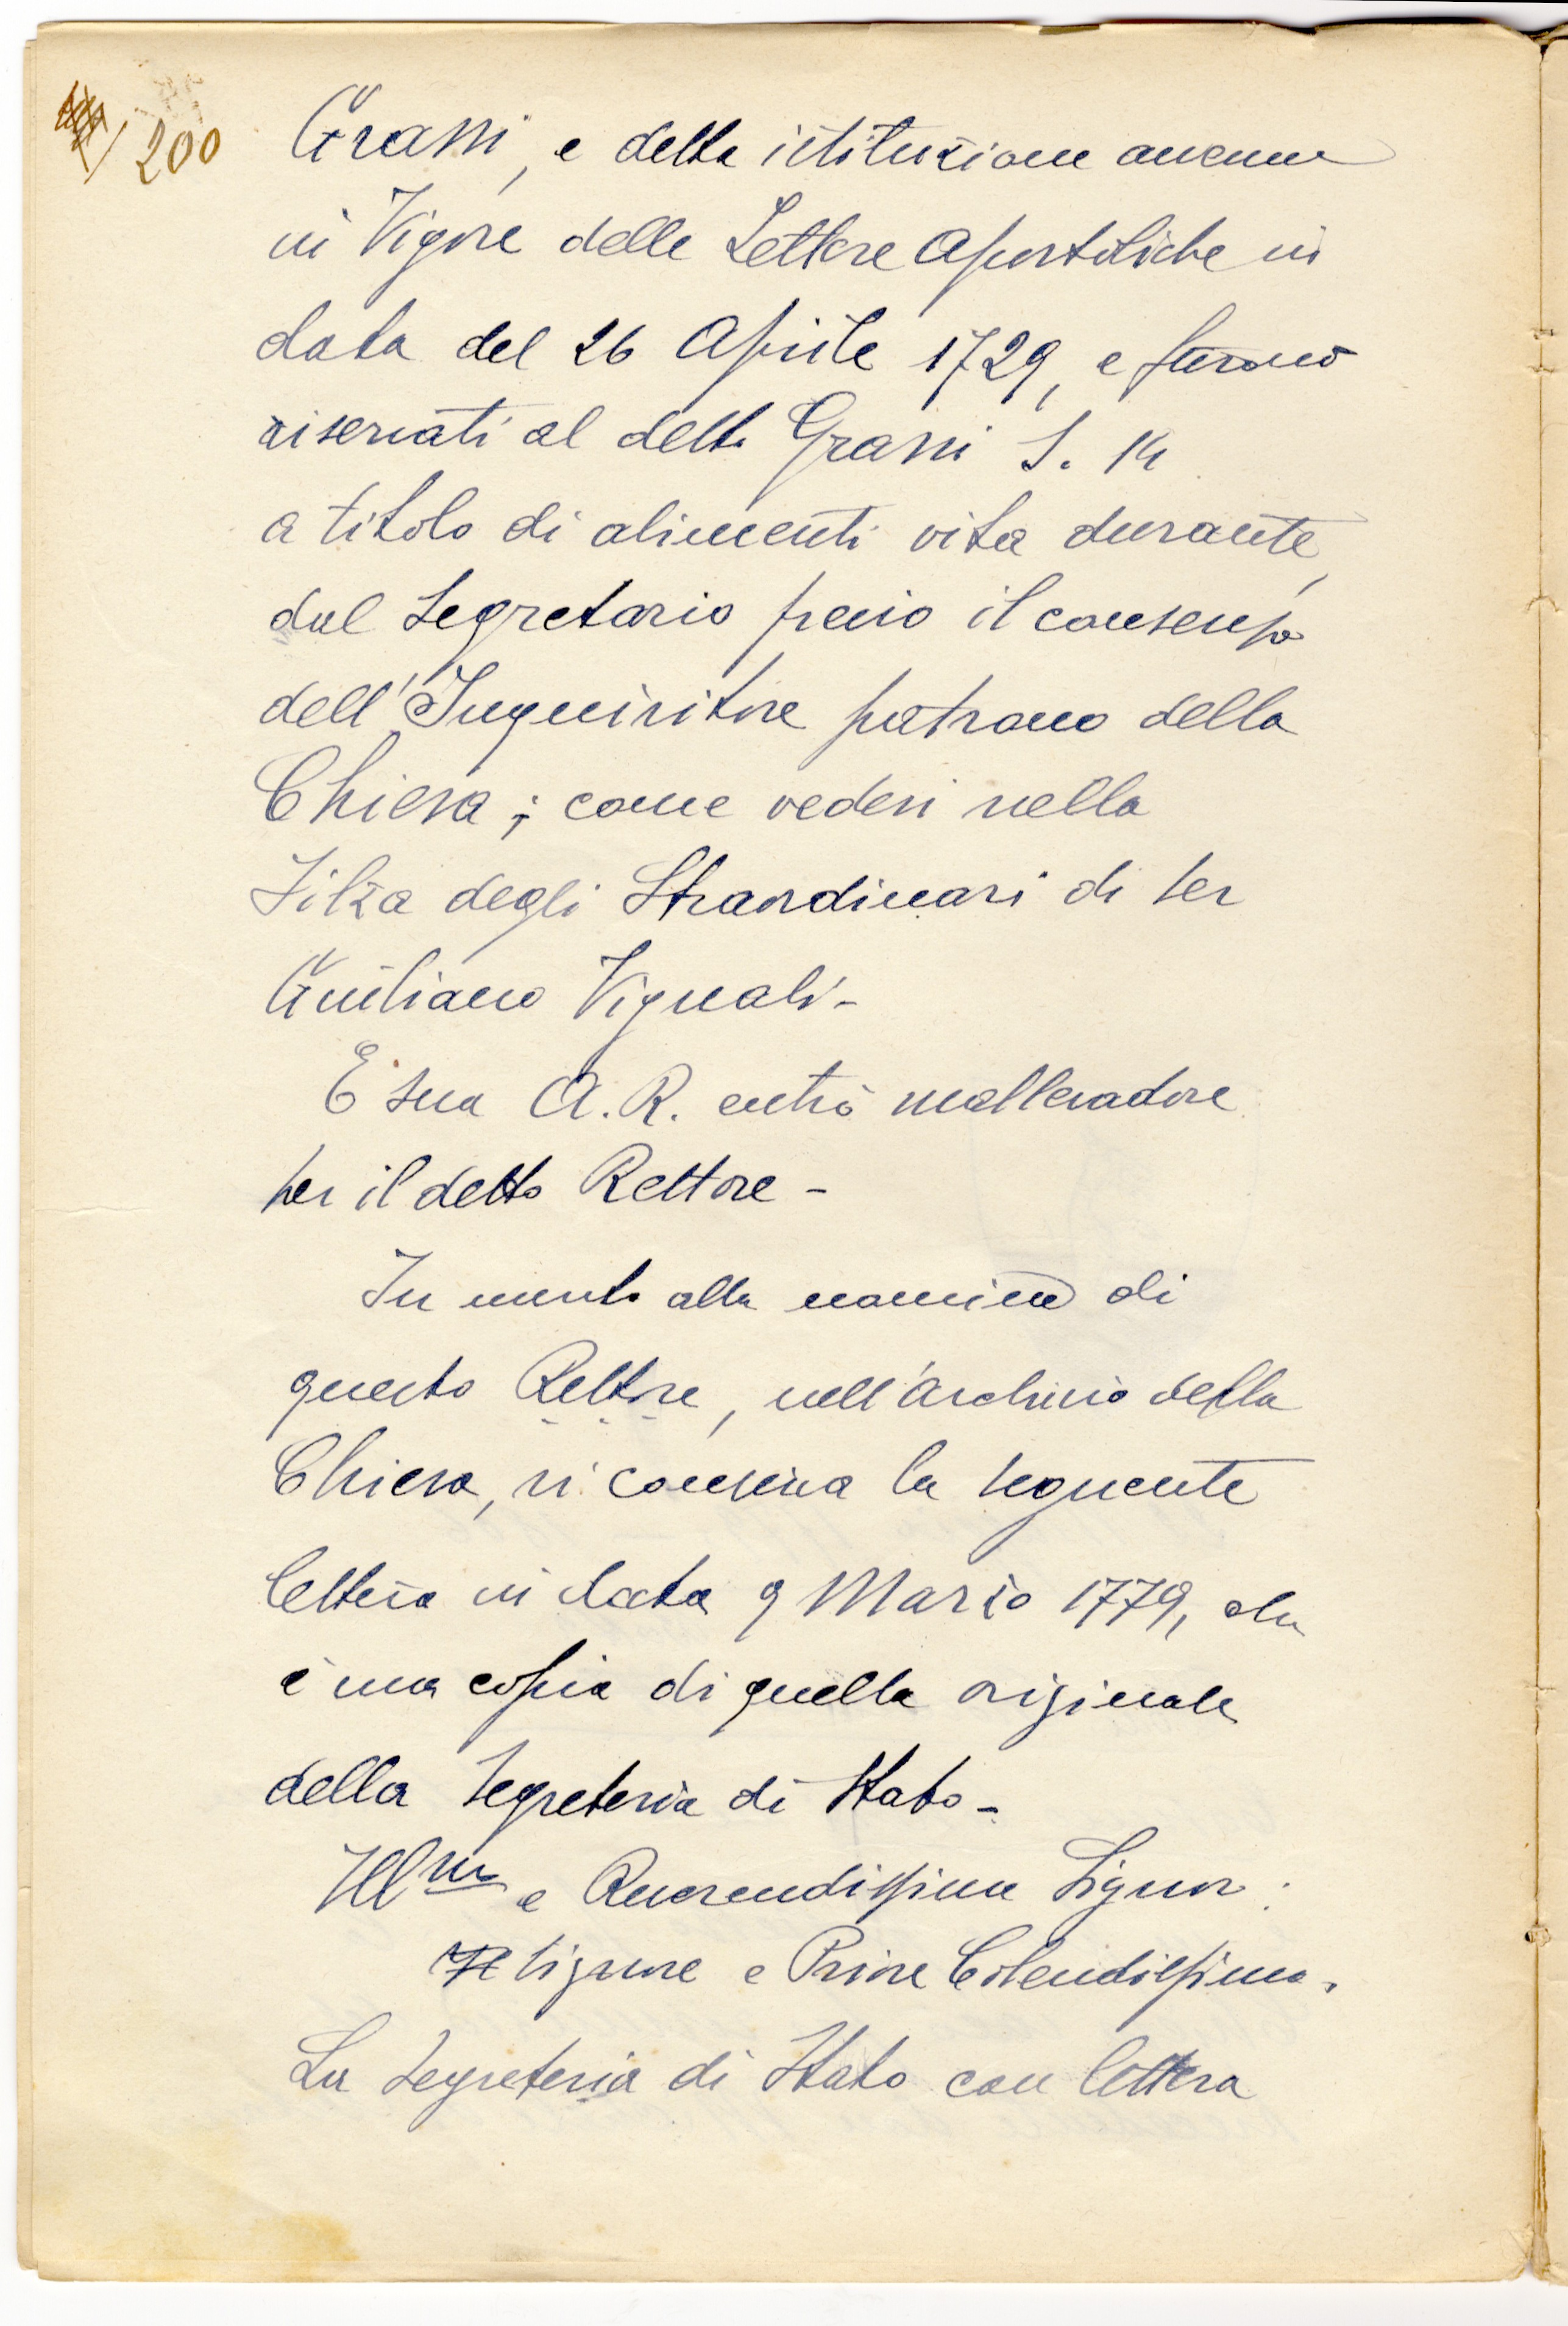 200
Grassi, e detta istituzione avenne
in Vigore delle Lettere Apostoliche in
data del 26 Aprile 1729, e furono
riservati al detto Grassi S. 14
a titolo di alimenti vita durante,
dal Segretario previo il consenso
dell'Inquisitore patrono della
Chiesa; come vedesi nella
Filza degli Straordinari di ser
Giuliano Vignali-
E sua A. R. entrò mallevadore
per il detto Rettore -
In merito alla nomina di
questo Rettore, nell'archivio della
Chiesa, si conserva la seguente
lettera in data 9 Marzo 1779, che
è una copia di quella originale
della Segreteria di Stato -
Ill.mo e Reverendissimo Signor:
Signore e Priore Colendissimo.
La Segreteria di Stato con lettera